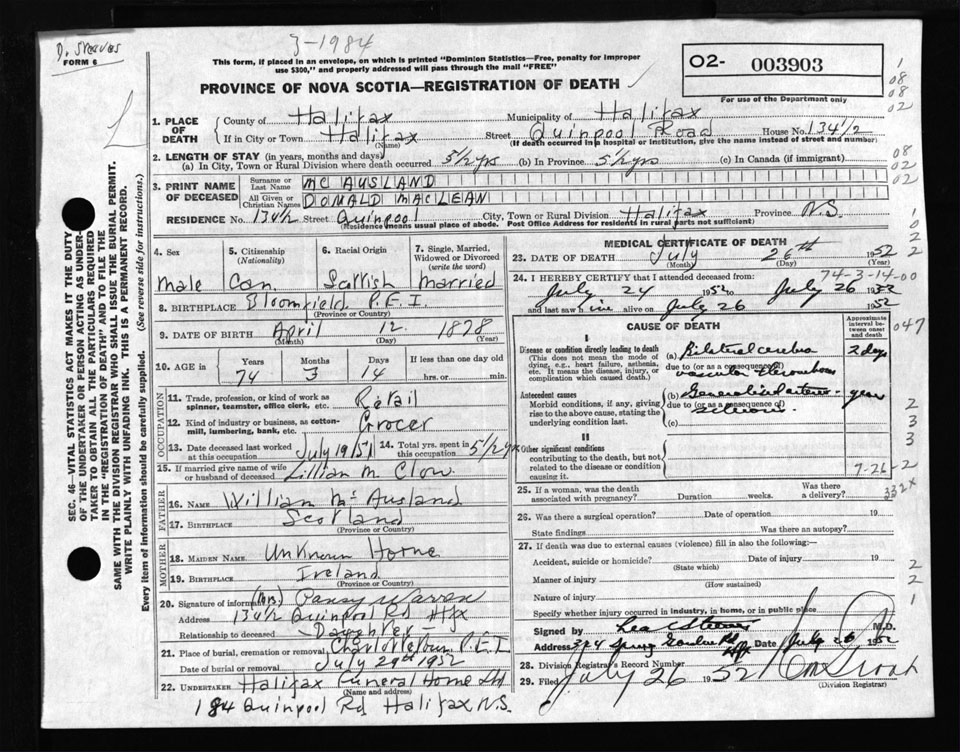 D. Steeves
FORM 6
3-1984
This form, if placed in an envelope, on which is printed "Dominion Statistics—Free, penalty for improper
use $300," and properly addressed will pass through the mail "FREE"
PROVINCE OF NOVA SCOTIA—REGISTRATION OF DEATH
O2- 003903
For use of the Department only
1. PLACE OF DEATH
County of Halifax Municipality of Halifax
If in City or Town Halifax Street Quinpool Road House No. 134 1/2
(Name) (If death occurred in a hospital or institution, give the name instead of street and number)
2. LENGTH OF STAY (in years, months and days)
(a) In City, Town or Rural Division where death occurred 5 1/2 yrs (b) In Province 5 1/2 yrs (c) In Canada (if immigrant)
3. PRINT NAME OF DECEASED
Surname or Last Name MC AUSLAND
All Given or Christian Names DONALD MACLEAN
RESIDENCE No. 134 1/2 Street Quinpool City, Town or Rural Division Halifax Province N.S.
(Residence means usual place of abode. Post Office Address in rural parts not sufficient)
4. Sex 5. Citizenship (Nationality) 6. Racial Origin 7. Single, Married, Widowed or Divorced (write the word)
Male Can. Scottish Married
8. BIRTHPLACE Bloomfield P.E.I.
(Province or Country)
9. DATE OF BIRTH April 12 1878
(Month) (Day) (Year)
10. AGE in Years Months Days If less than one day old
74 3 14 hrs. or min.
OCCUPATION
11. Trade, profession, or kind of work as spinner, teamster, office clerk, etc. Retail
12. Kind of industry or business, as cotton-mill, lumbering, bank, etc. Grocer
13. Date deceased last worked at this occupation July 1951 14. Total yrs. spent in this occupation 5 1/2 yrs
15. If married give name of wife or husband of deceased Lillian M. Clow.
FATHER
16. NAME William McAusland
17. BIRTHPLACE Scotland
(Province or Country)
MOTHER
18. MAIDEN NAME Unknown Horne
19. BIRTHPLACE Ireland
(Province or Country)
20. Signature of informant (Mrs.) Pansy Warren
Address 134 1/2 Quinpool Rd Hfx
Relationship to deceased Daughter
21. Place of burial, cremation or removal Charlottetown P.E.I.
Date of burial or removal July 29th 1952
22. UNDERTAKER Halifax Funeral Home Ltd
(Name and address)
184 Quinpool Rd Halifax N.S.
MEDICAL CERTIFICATE OF DEATH
23. DATE OF DEATH July 26th 1952
(Month) (Day) (Year)
74-3-14-00
24. I HEREBY CERTIFY that I attended deceased from:
July 24 1952 to July 26 1952
and last saw him alive on July 26 1952
CAUSE OF DEATH
Approximate interval between onset and death
I
Disease or condition directly leading to death (a) Bilateral cerebro 2 days
(This does not mean the mode of dying, e.g., heart failure, asthenia, etc. It means the disease, injury, or complication which caused death.)
due to (or as a consequence of) vascular thrombosis
Antecedent causes (b) Generalized arterio- years
Morbid conditions, if any, giving rise to the above cause, stating the underlying condition last.
due to (or as a consequence of) sclerosis
(c)
II
Other significant conditions contributing to the death, but not related to the disease or condition causing it.
7-26-2
332x
25. If a woman, was the death associated with pregnancy? Duration weeks. Was there a delivery?
26. Was there a surgical operation? Date of operation 19
State findings Was there an autopsy?
27. If death was due to external causes (violence) fill in also the following:
Accident, suicide or homicide? Date of injury 19
(State which)
Manner of injury
(How sustained)
Nature of injury
Specify whether injury occurred in industry, in home, or in public place
Signed by M.D.
Address 324 Spring Garden Rd Hfx Date July 26 1952
28. Division Registrar's Record Number
29. Filed July 26 1952
(Division Registrar)
SEC. 46—VITAL STATISTICS ACT MAKES IT THE DUTY
OF THE UNDERTAKER OR PERSON ACTING AS UNDER-
TAKER TO OBTAIN ALL THE PARTICULARS REQUIRED
IN THE "REGISTRATION OF DEATH" AND TO FILE THE
SAME WITH THE DIVISION REGISTRAR WHO SHALL ISSUE THE BURIAL PERMIT.
WRITE PLAINLY WITH UNFADING INK. THIS IS A PERMANENT RECORD.
Every item of information should be carefully supplied. (See reverse side for instructions.)
1
08
08
02
08
02
02
1
0
2
2
047
2
3
3
2
2
1